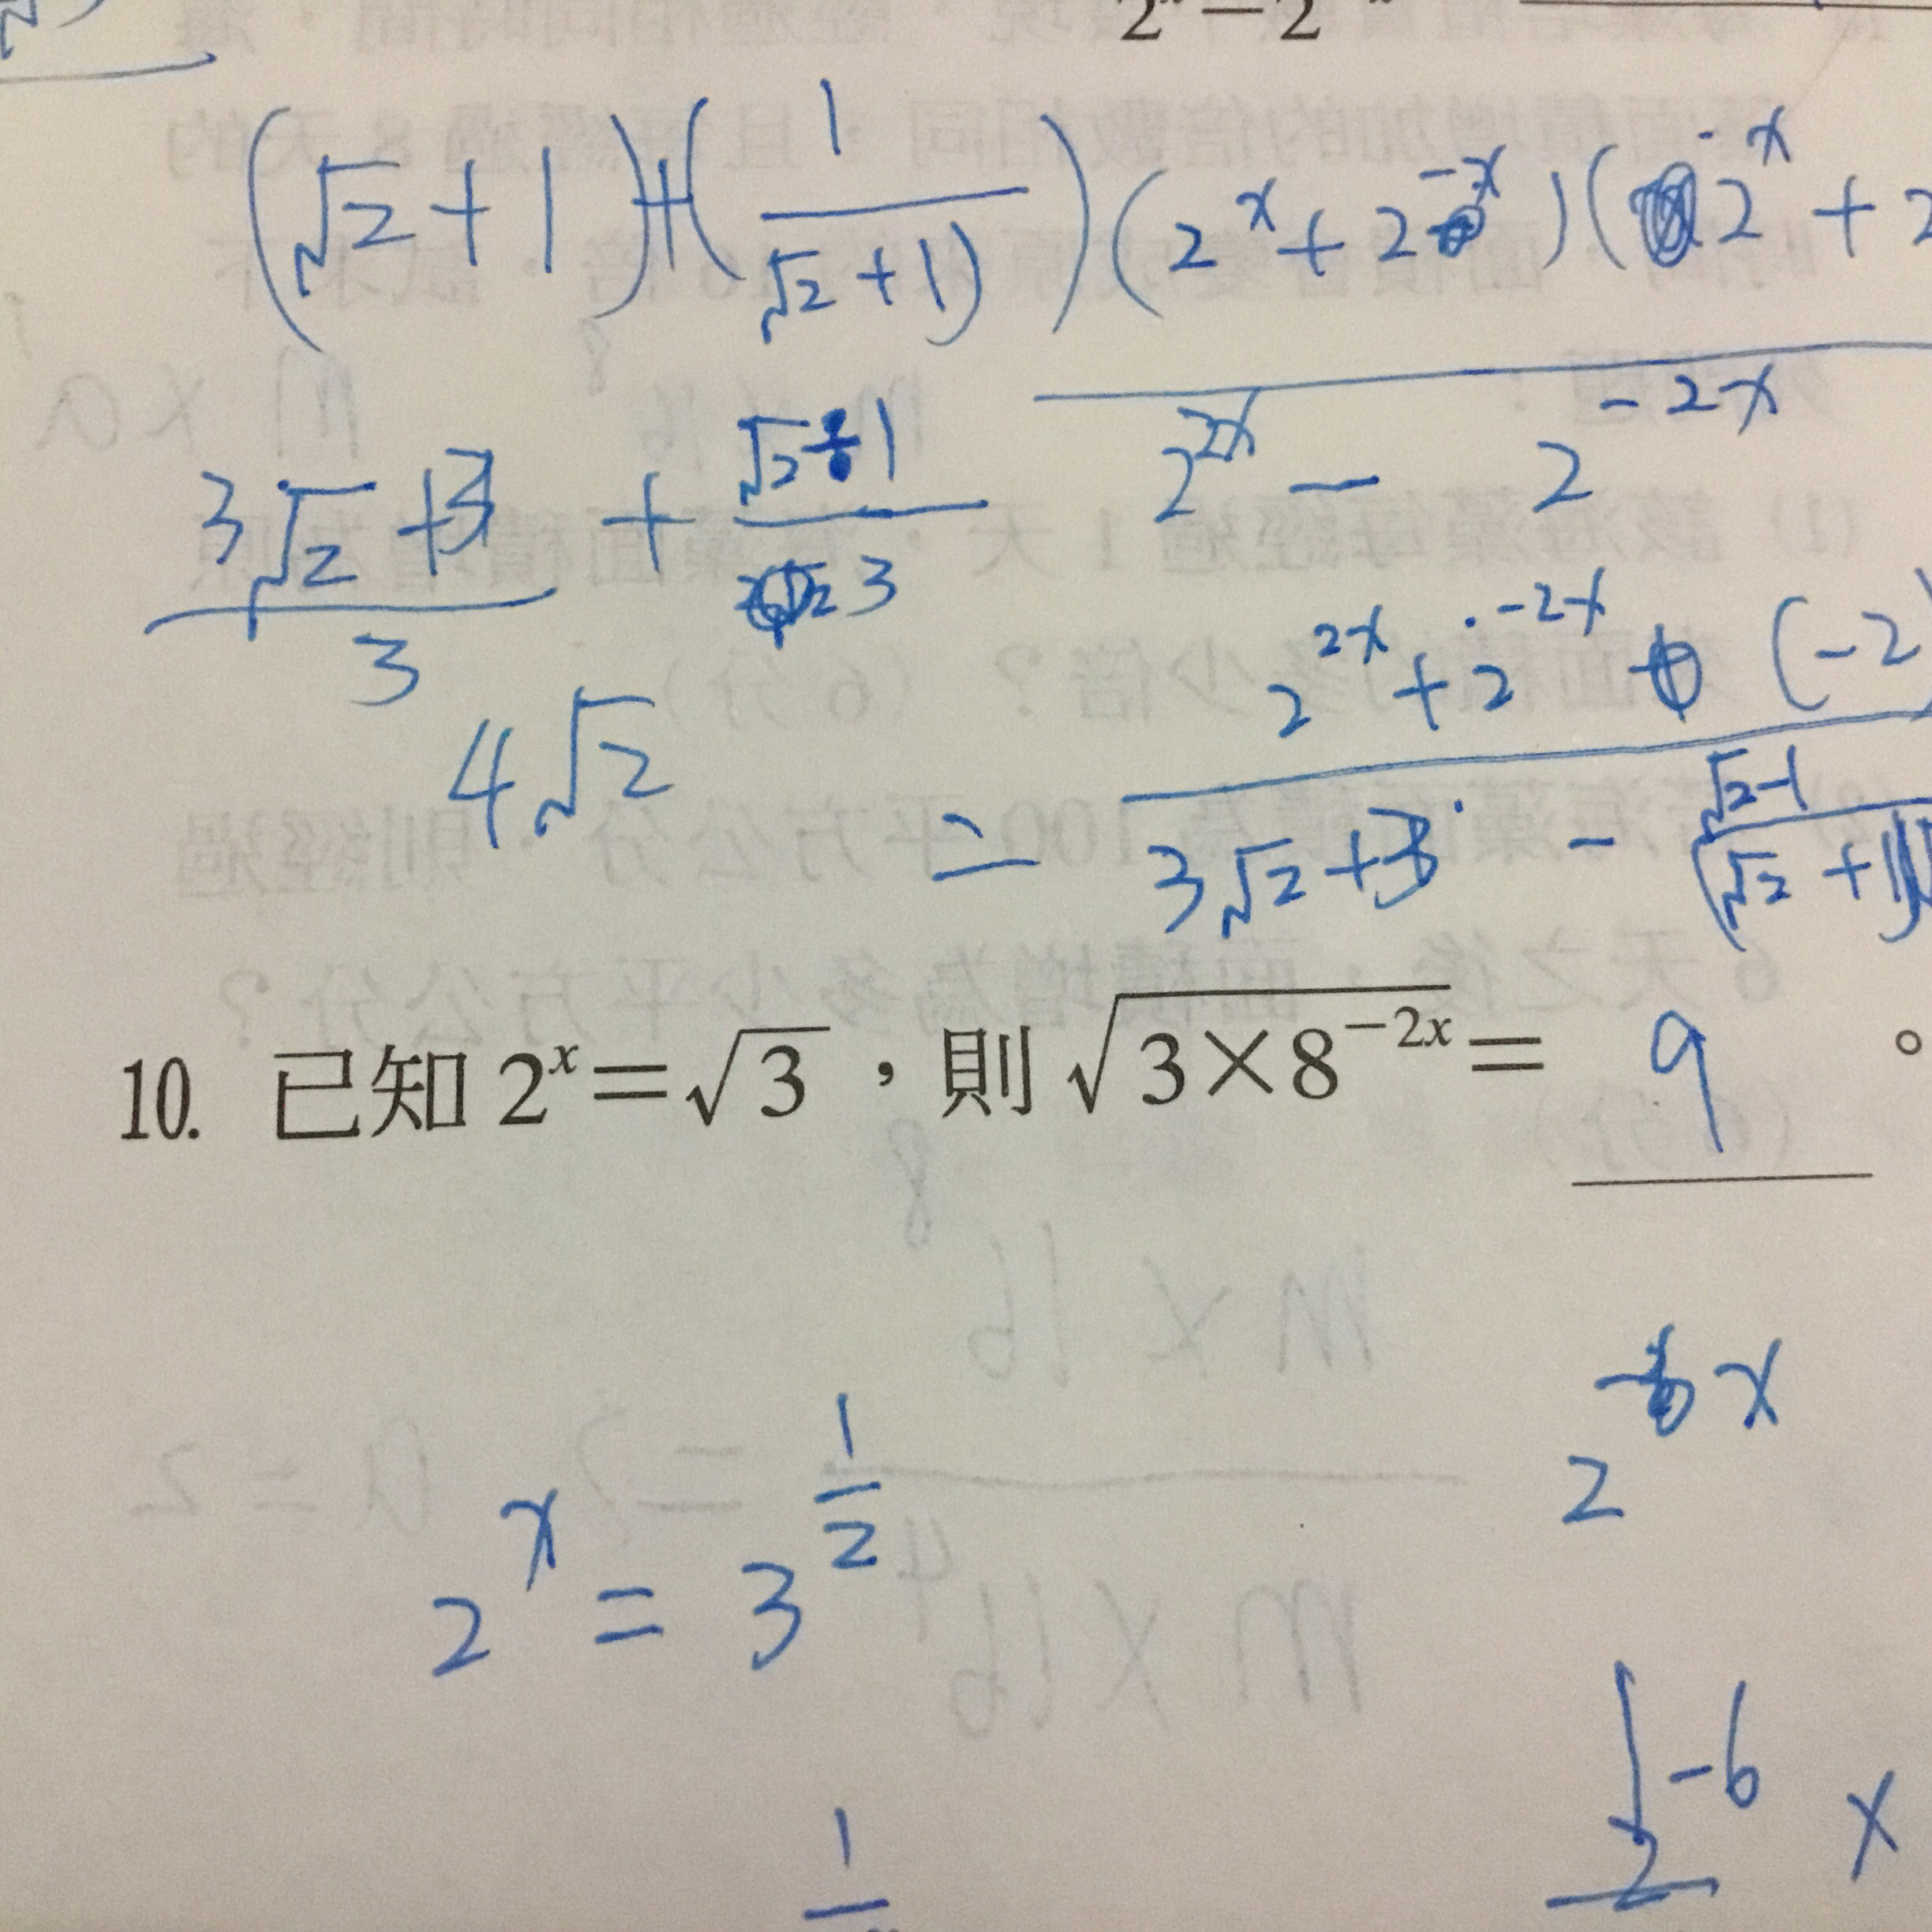 2ˣ−2
(√2+1)+(1/(√2+1)) (2ˣ+2⁻ˣ)(2⁻ˣ+2
2²ˣ − 2⁻²ˣ
(3√2+3)/3 + (√2−1)/3
4√2
2²ˣ+2⁻²ˣ (−2
= 3√2+3 − (√2−1)/(√2+1)
10. 已知 2ˣ=√3，則 √(3×8⁻²ˣ)= 9 。
2⁻⁶ˣ
2ˣ = 3^(1/2)
-6
2 x
1